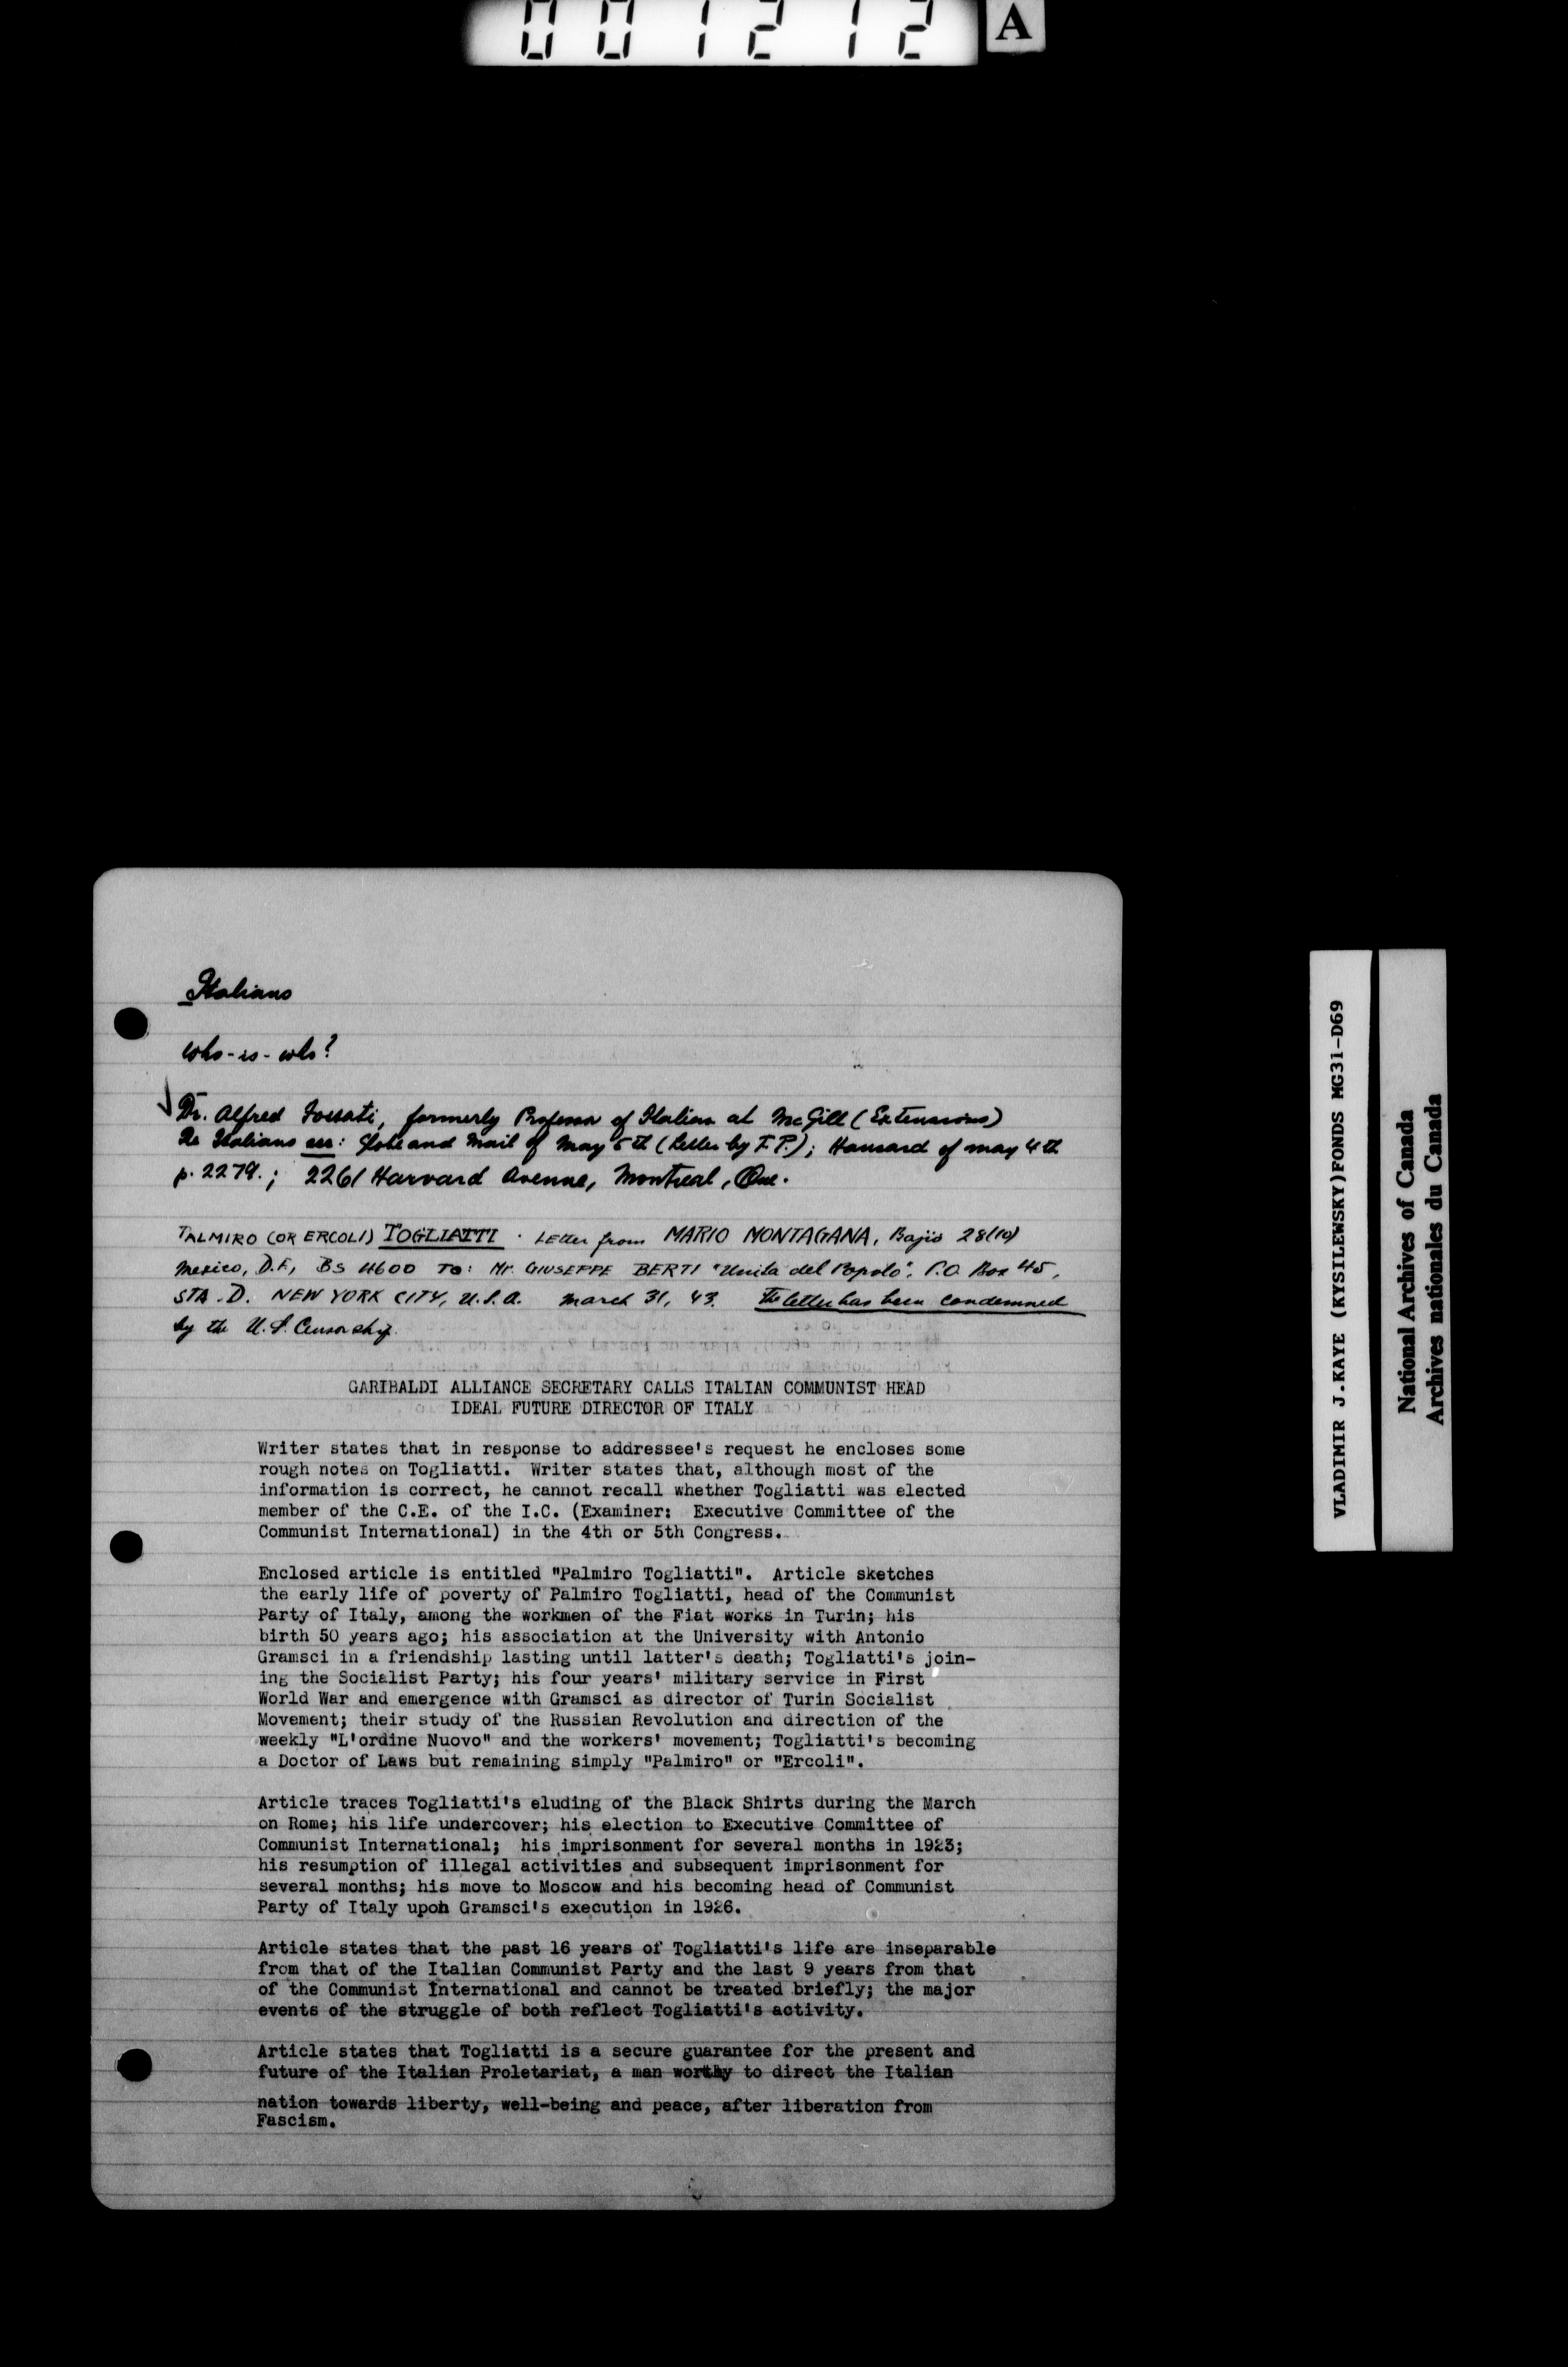 001212
A
Italians
Who-is-who?
Dr. Alfred Fossati, formerly Professor of Italian at McGill (Extensions)
Re Italians see: Globe and Mail of May 5th (Letter by F.P.); Hansard of May 4th
p. 2279.; 2261 Harvard Avenue, Montreal, Que.
PALMIRO (OR ERCOLI) TOGLIATTI . Letter from MARIO MONTAGANA, Bajio 28(10)
Mexico, D.F., BS 4600 TO: Mr. GIUSEPPE BERTI "Unita del Popolo", P.O. Box 45,
STA. D. NEW YORK CITY, U.S.A. March 31, 43. The letter has been condemned
by the U.S. Censorship.
GARIBALDI ALLIANCE SECRETARY CALLS ITALIAN COMMUNIST HEAD
IDEAL FUTURE DIRECTOR OF ITALY
Writer states that in response to addressee's request he encloses some
rough notes on Togliatti. Writer states that, although most of the
information is correct, he cannot recall whether Togliatti was elected
member of the C.E. of the I.C. (Examiner: Executive Committee of the
Communist International) in the 4th or 5th Congress.
Enclosed article is entitled "Palmiro Togliatti". Article sketches
the early life of poverty of Palmiro Togliatti, head of the Communist
Party of Italy, among the workmen of the Fiat works in Turin; his
birth 50 years ago; his association at the University with Antonio
Gramsci in a friendship lasting until latter's death; Togliatti's join-
ing the Socialist Party; his four years' military service in First
World War and emergence with Gramsci as director of Turin Socialist
Movement; their study of the Russian Revolution and direction of the
weekly "L'ordine Nuovo" and the workers' movement; Togliatti's becoming
a Doctor of Laws but remaining simply "Palmiro" or "Ercoli".
Article traces Togliatti's eluding of the Black Shirts during the March
on Rome; his life undercover; his election to Executive Committee of
Communist International; his imprisonment for several months in 1923;
his resumption of illegal activities and subsequent imprisonment for
several months; his move to Moscow and his becoming head of Communist
Party of Italy upon Gramsci's execution in 1926.
Article states that the past 16 years of Togliatti's life are inseparable
from that of the Italian Communist Party and the last 9 years from that
of the Communist International and cannot be treated briefly; the major
events of the struggle of both reflect Togliatti's activity.
Article states that Togliatti is a secure guarantee for the present and
future of the Italian Proletariat, a man worthy to direct the Italian
nation towards liberty, well-being and peace, after liberation from
Fascism.
VLADIMIR J.KAYE (KYSILEWSKY)FONDS MG31-D69
National Archives of Canada
Archives nationales du Canada